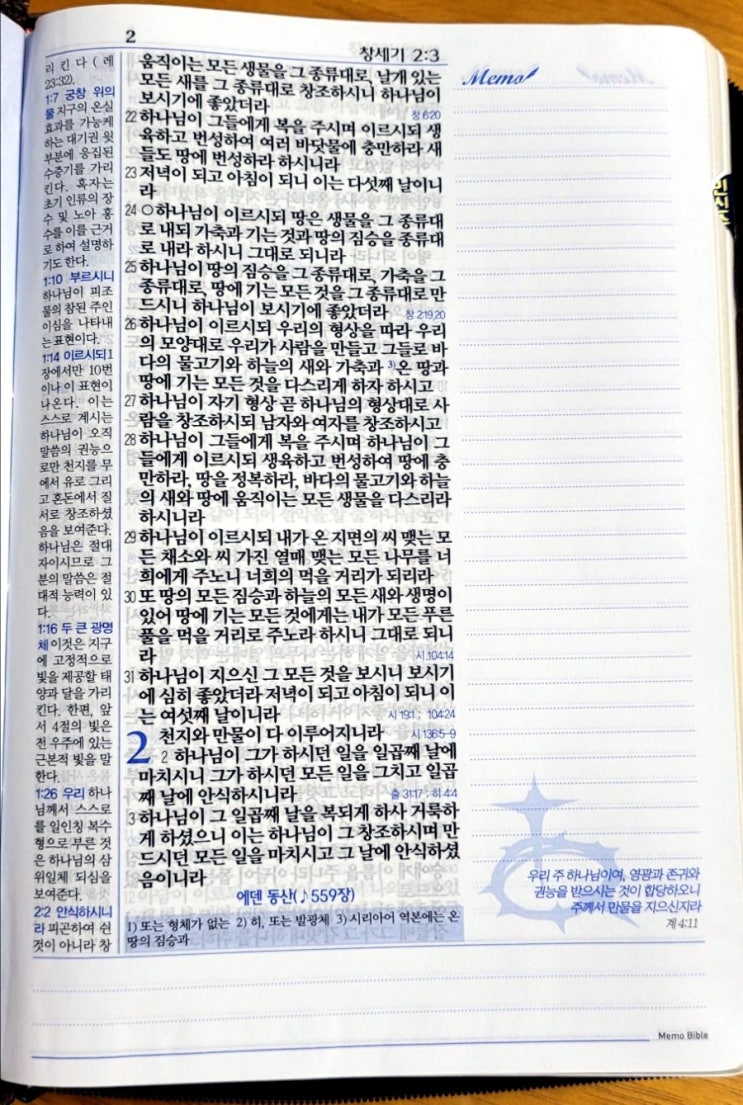 2
창세기 2:3
리킨다(레
23:32).
1:7 궁창 위의
물 지구의 온실
효과를 가능케
하는 대기권 윗
부분에 응집된
수증기를 가리
킨다. 혹자는
초기 인류의 장
수 및 노아 홍
수를 이를 근거
로 하여 설명하
기도 한다.
1:10 부르시니
하나님이 피조
물의 참된 주인
이심을 나타내
는 표현이다.
1:14 이르시되 1
장에서만 10번
이나 이 표현이
나온다. 이는
스스로 계시는
하나님이 오직
말씀의 권능으
로만 천지를 무
에서 유로 그리
고 혼돈에서 질
서로 창조하셨
음을 보여준다.
하나님은 절대
자이시므로 그
분의 말씀은 절
대적 능력이 있
다.
1:16 두 큰 광명
체 이것은 지구
에 고정적으로
빛을 제공할 태
양과 달을 가리
킨다. 한편, 앞
서 4절의 빛은
전 우주에 있는
근본적 빛을 말
한다.
1:26 우리 하나
님께서 스스로
를 일인칭 복수
형으로 부른 것
은 하나님의 삼
위일체 되심을
보여준다.
2:2 안식하시니
라 피곤하여 쉰
것이 아니라 창
움직이는 모든 생물을 그 종류대로, 날개 있는
모든 새를 그 종류대로 창조하시니 하나님이
보시기에 좋았더라 창 6:20
22 하나님이 그들에게 복을 주시며 이르시되 생
육하고 번성하여 여러 바닷물에 충만하라 새
들도 땅에 번성하라 하시니라
23 저녁이 되고 아침이 되니 이는 다섯째 날이니
라
24 ○하나님이 이르시되 땅은 생물을 그 종류대
로 내되 가축과 기는 것과 땅의 짐승을 종류대
로 내라 하시니 그대로 되니라
25 하나님이 땅의 짐승을 그 종류대로, 가축을 그
종류대로, 땅에 기는 모든 것을 그 종류대로 만
드시니 하나님이 보시기에 좋았더라 창 2:19,20
26 하나님이 이르시되 우리의 형상을 따라 우리
의 모양대로 우리가 사람을 만들고 그들로 바
다의 물고기와 하늘의 새와 가축과 3)온 땅과
땅에 기는 모든 것을 다스리게 하자 하시고
27 하나님이 자기 형상 곧 하나님의 형상대로 사
람을 창조하시되 남자와 여자를 창조하시고
28 하나님이 그들에게 복을 주시며 하나님이 그
들에게 이르시되 생육하고 번성하여 땅에 충
만하라, 땅을 정복하라, 바다의 물고기와 하늘
의 새와 땅에 움직이는 모든 생물을 다스리라
하시니라
29 하나님이 이르시되 내가 온 지면의 씨 맺는 모
든 채소와 씨 가진 열매 맺는 모든 나무를 너
희에게 주노니 너희의 먹을 거리가 되리라
30 또 땅의 모든 짐승과 하늘의 모든 새와 생명이
있어 땅에 기는 모든 것에게는 내가 모든 푸른
풀을 먹을 거리로 주노라 하시니 그대로 되니
라 시 104:14
31 하나님이 지으신 그 모든 것을 보시니 보시기
에 심히 좋았더라 저녁이 되고 아침이 되니 이
는 여섯째 날이니라 시 19:1 ; 104:24
2 천지와 만물이 다 이루어지니라 시 136:5-9
2 하나님이 그가 하시던 일을 일곱째 날에
마치시니 그가 하시던 모든 일을 그치고 일곱
째 날에 안식하시니라 출 31:17 ; 히 4:4
3 하나님이 그 일곱째 날을 복되게 하사 거룩하
게 하셨으니 이는 하나님이 그 창조하시며 만
드시던 모든 일을 마치시고 그 날에 안식하셨
음이니라
에덴 동산(♪559장)
1) 또는 형체가 없는 2) 히, 또는 발광체 3) 시리아어 역본에는 온
땅의 짐승과
Memo
우리 주 하나님이여, 영광과 존귀와
권능을 받으시는 것이 합당하오니
주께서 만물을 지으신지라
계 4:11
Memo Bible